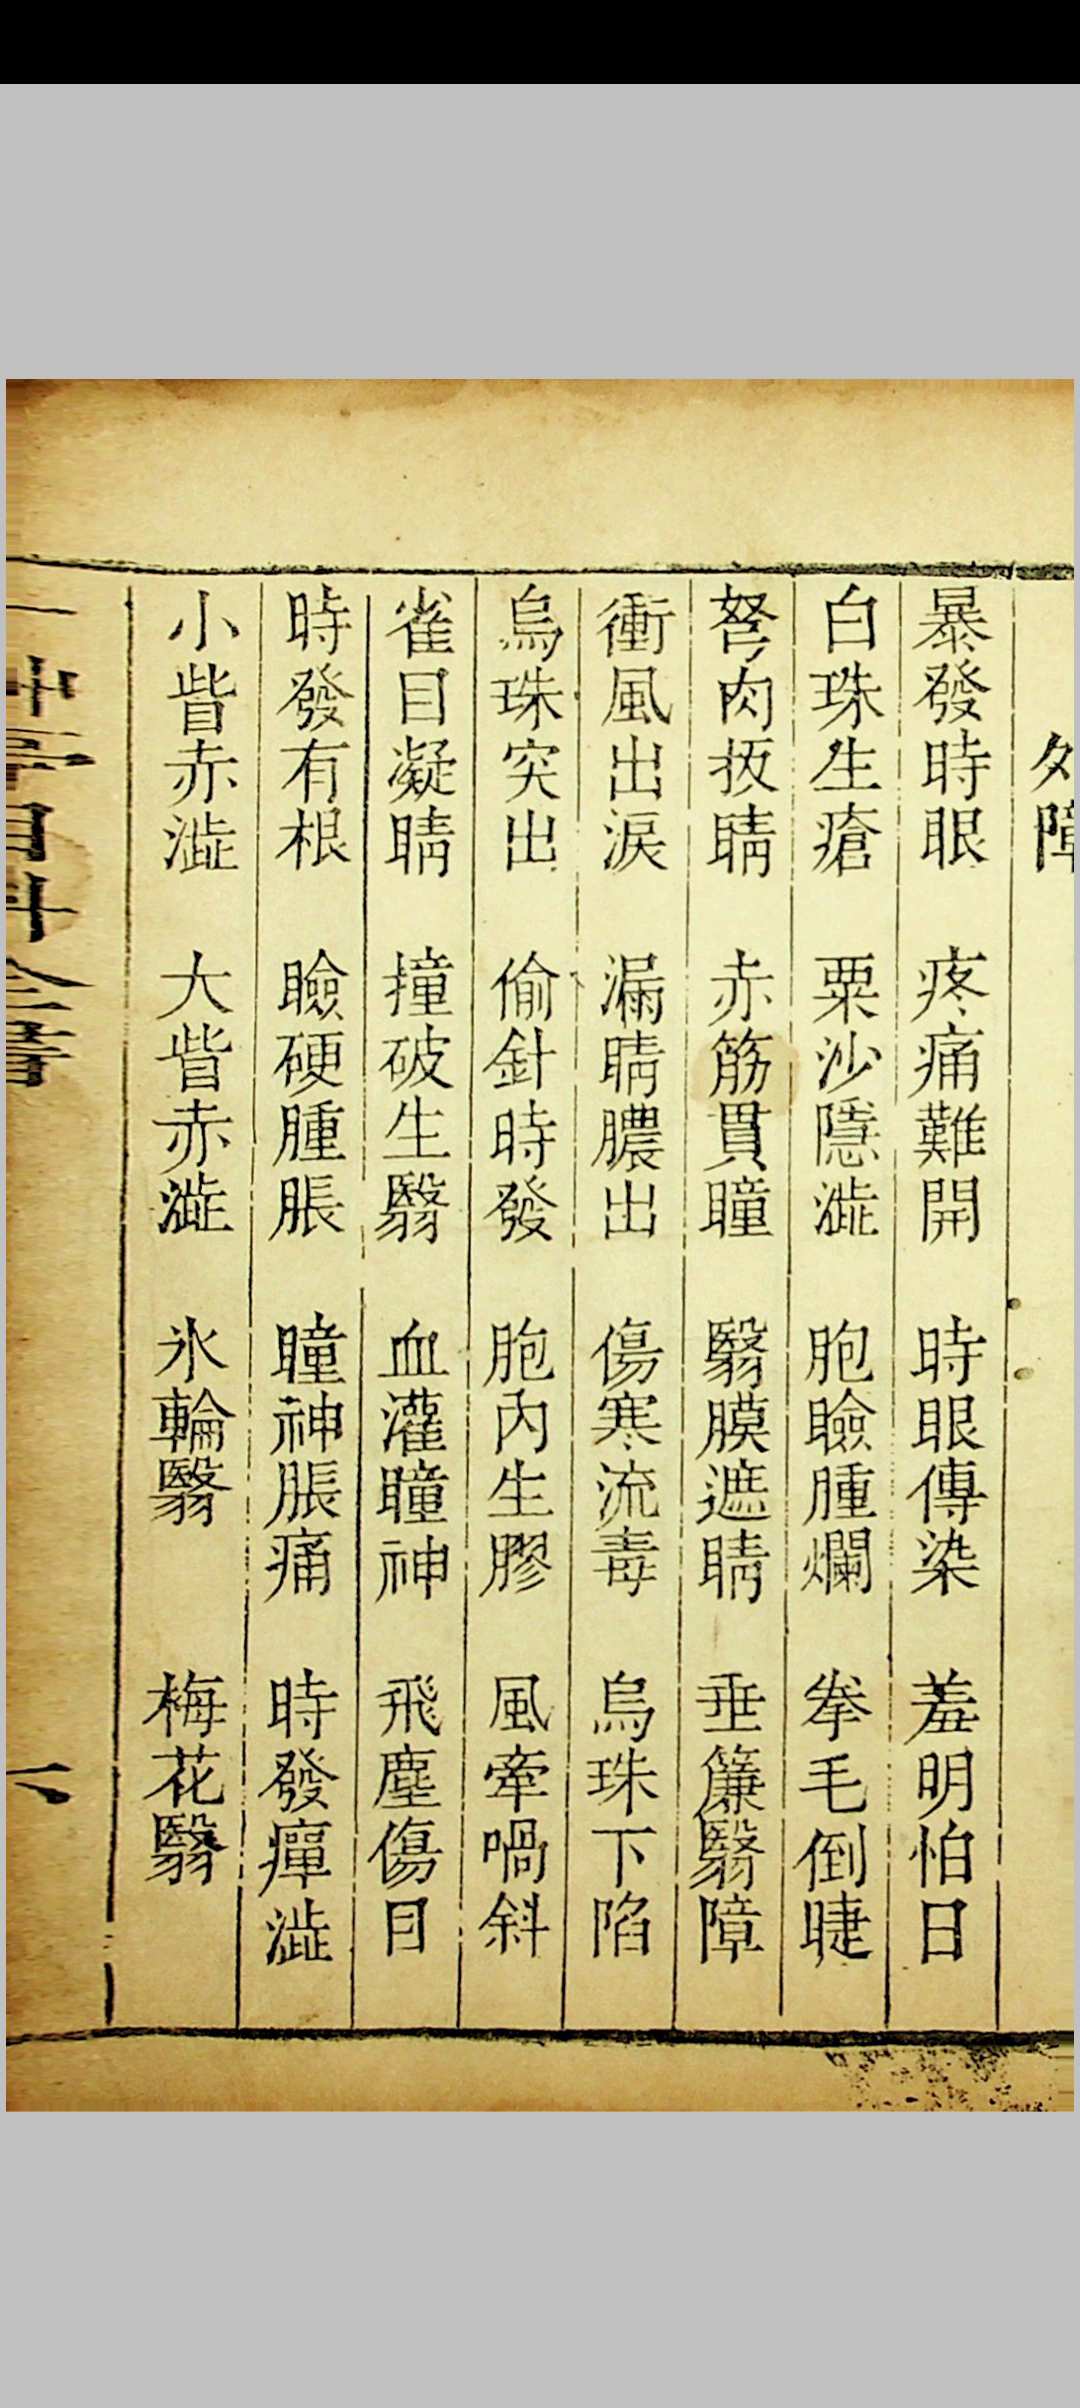 外障
暴發時眼 疼痛難開 時眼傳染 羞明怕日
白珠生瘡 粟沙隱澁 胞瞼腫爛 拳毛倒睫
胬肉扳睛 赤筋貫瞳 翳膜遮睛 垂簾翳障
衝風出淚 漏睛膿出 傷寒流毒 烏珠下陷
烏珠突出 偷針時發 胞內生膠 風牽喎斜
雀目凝睛 撞破生翳 血灌瞳神 飛塵傷目
時發有根 瞼硬腫脹 瞳神脹痛 時發癉澁
小眥赤澁 大眥赤澁 氷輪翳 梅花翳